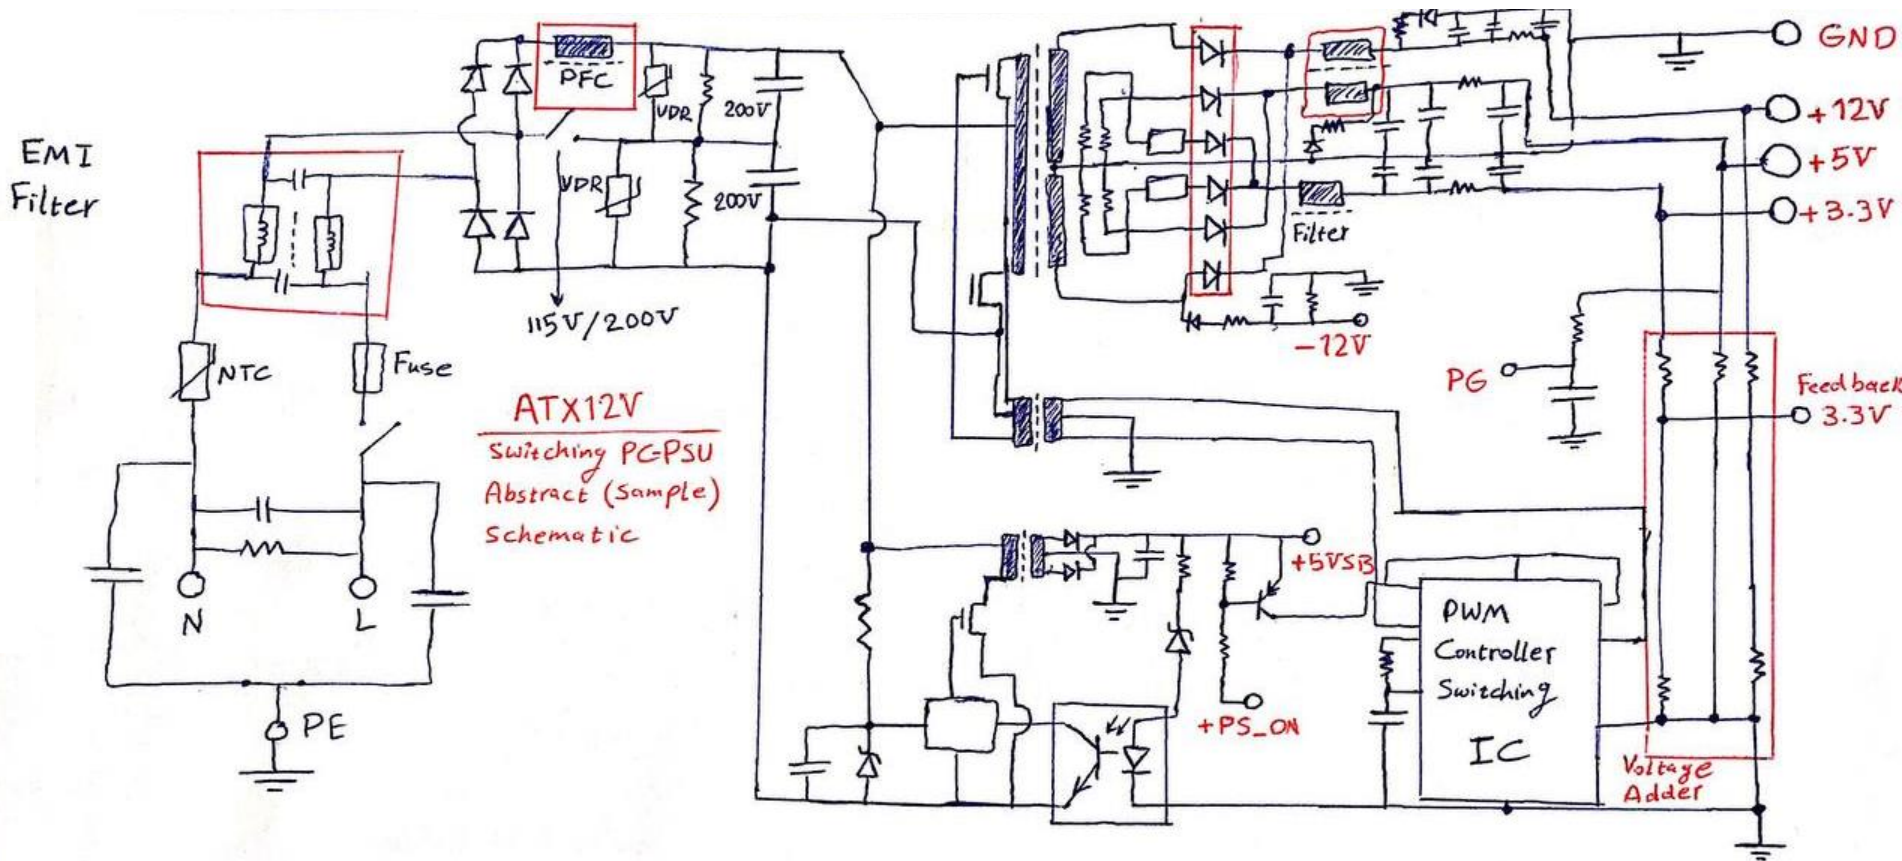 EMI
Filter
PFC
VDR
200V
VDR
200V
115V/200V
NTC
Fuse
N
L
PE
ATX12V
Switching PC-PSU
Abstract (Sample)
Schematic
GND
+12V
+5V
+3.3V
Filter
-12V
PG
Feedback
3.3V
+5VSB
+PS_ON
PWM
Controller
Switching
IC
Voltage
Adder